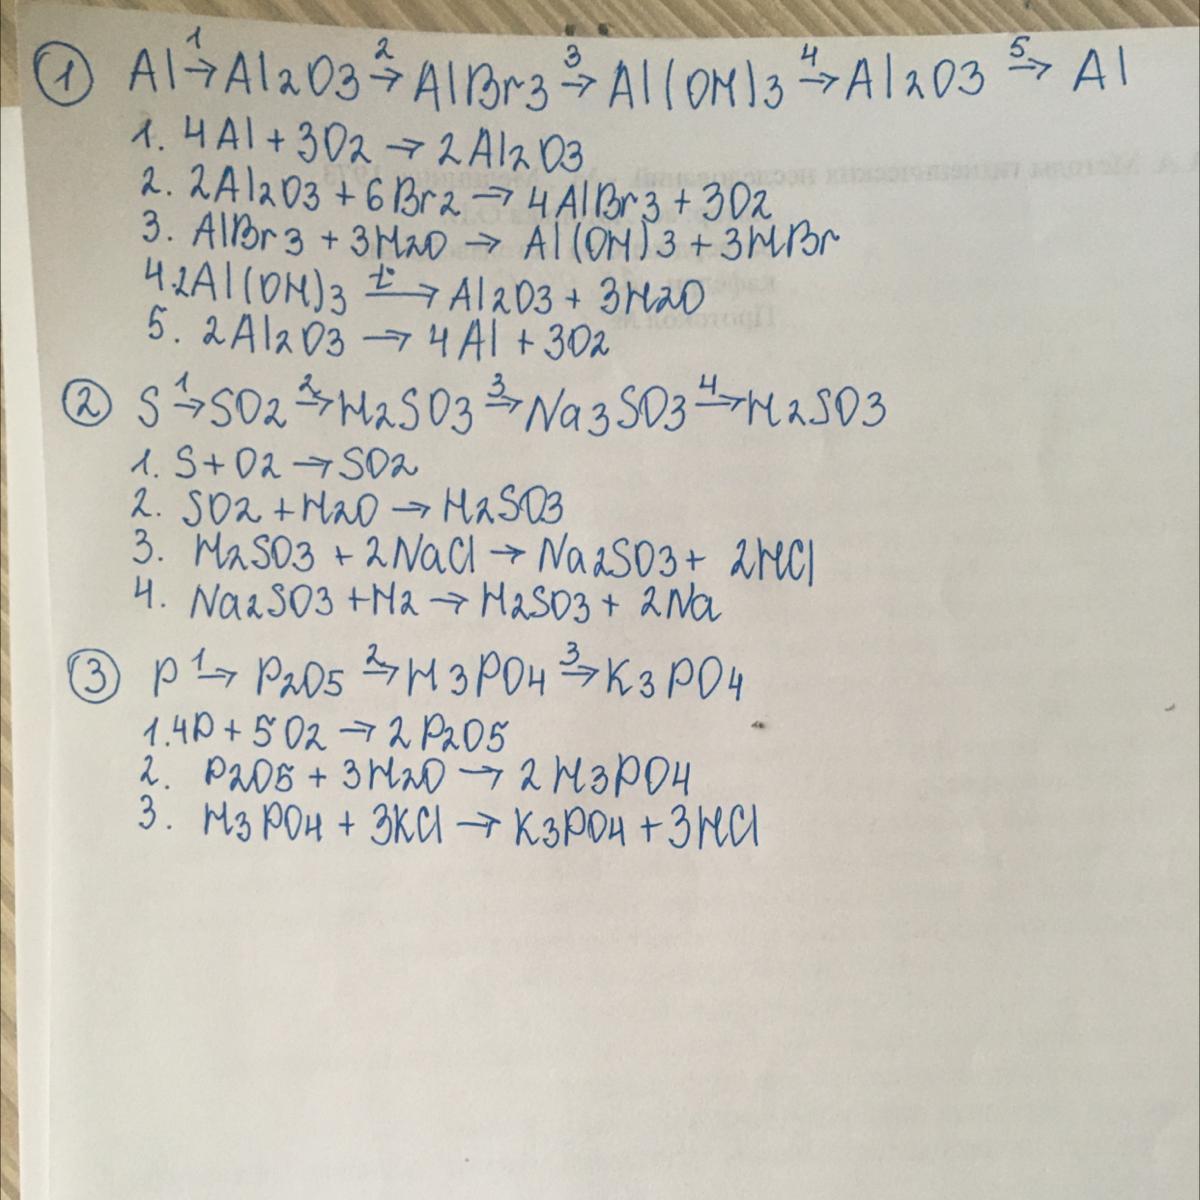 ① Al →¹ Al2O3 →² AlBr3 →³ Al(OH)3 →⁴ Al2O3 →⁵ Al
1. 4Al + 3O2 → 2Al2O3
2. 2Al2O3 + 6Br2 → 4AlBr3 + 3O2
3. AlBr3 + 3H2O → Al(OH)3 + 3HBr
4. 2Al(OH)3 →t° Al2O3 + 3H2O
5. 2Al2O3 → 4Al + 3O2
② S →¹ SO2 →² H2SO3 →³ Na3SO3 →⁴ H2SO3
1. S + O2 → SO2
2. SO2 + H2O → H2SO3
3. H2SO3 + 2NaCl → Na2SO3 + 2HCl
4. Na2SO3 + H2 → H2SO3 + 2Na
③ P →¹ P2O5 →² H3PO4 →³ K3PO4
1. 4P + 5O2 → 2P2O5
2. P2O5 + 3H2O → 2H3PO4
3. H3PO4 + 3KCl → K3PO4 + 3HCl